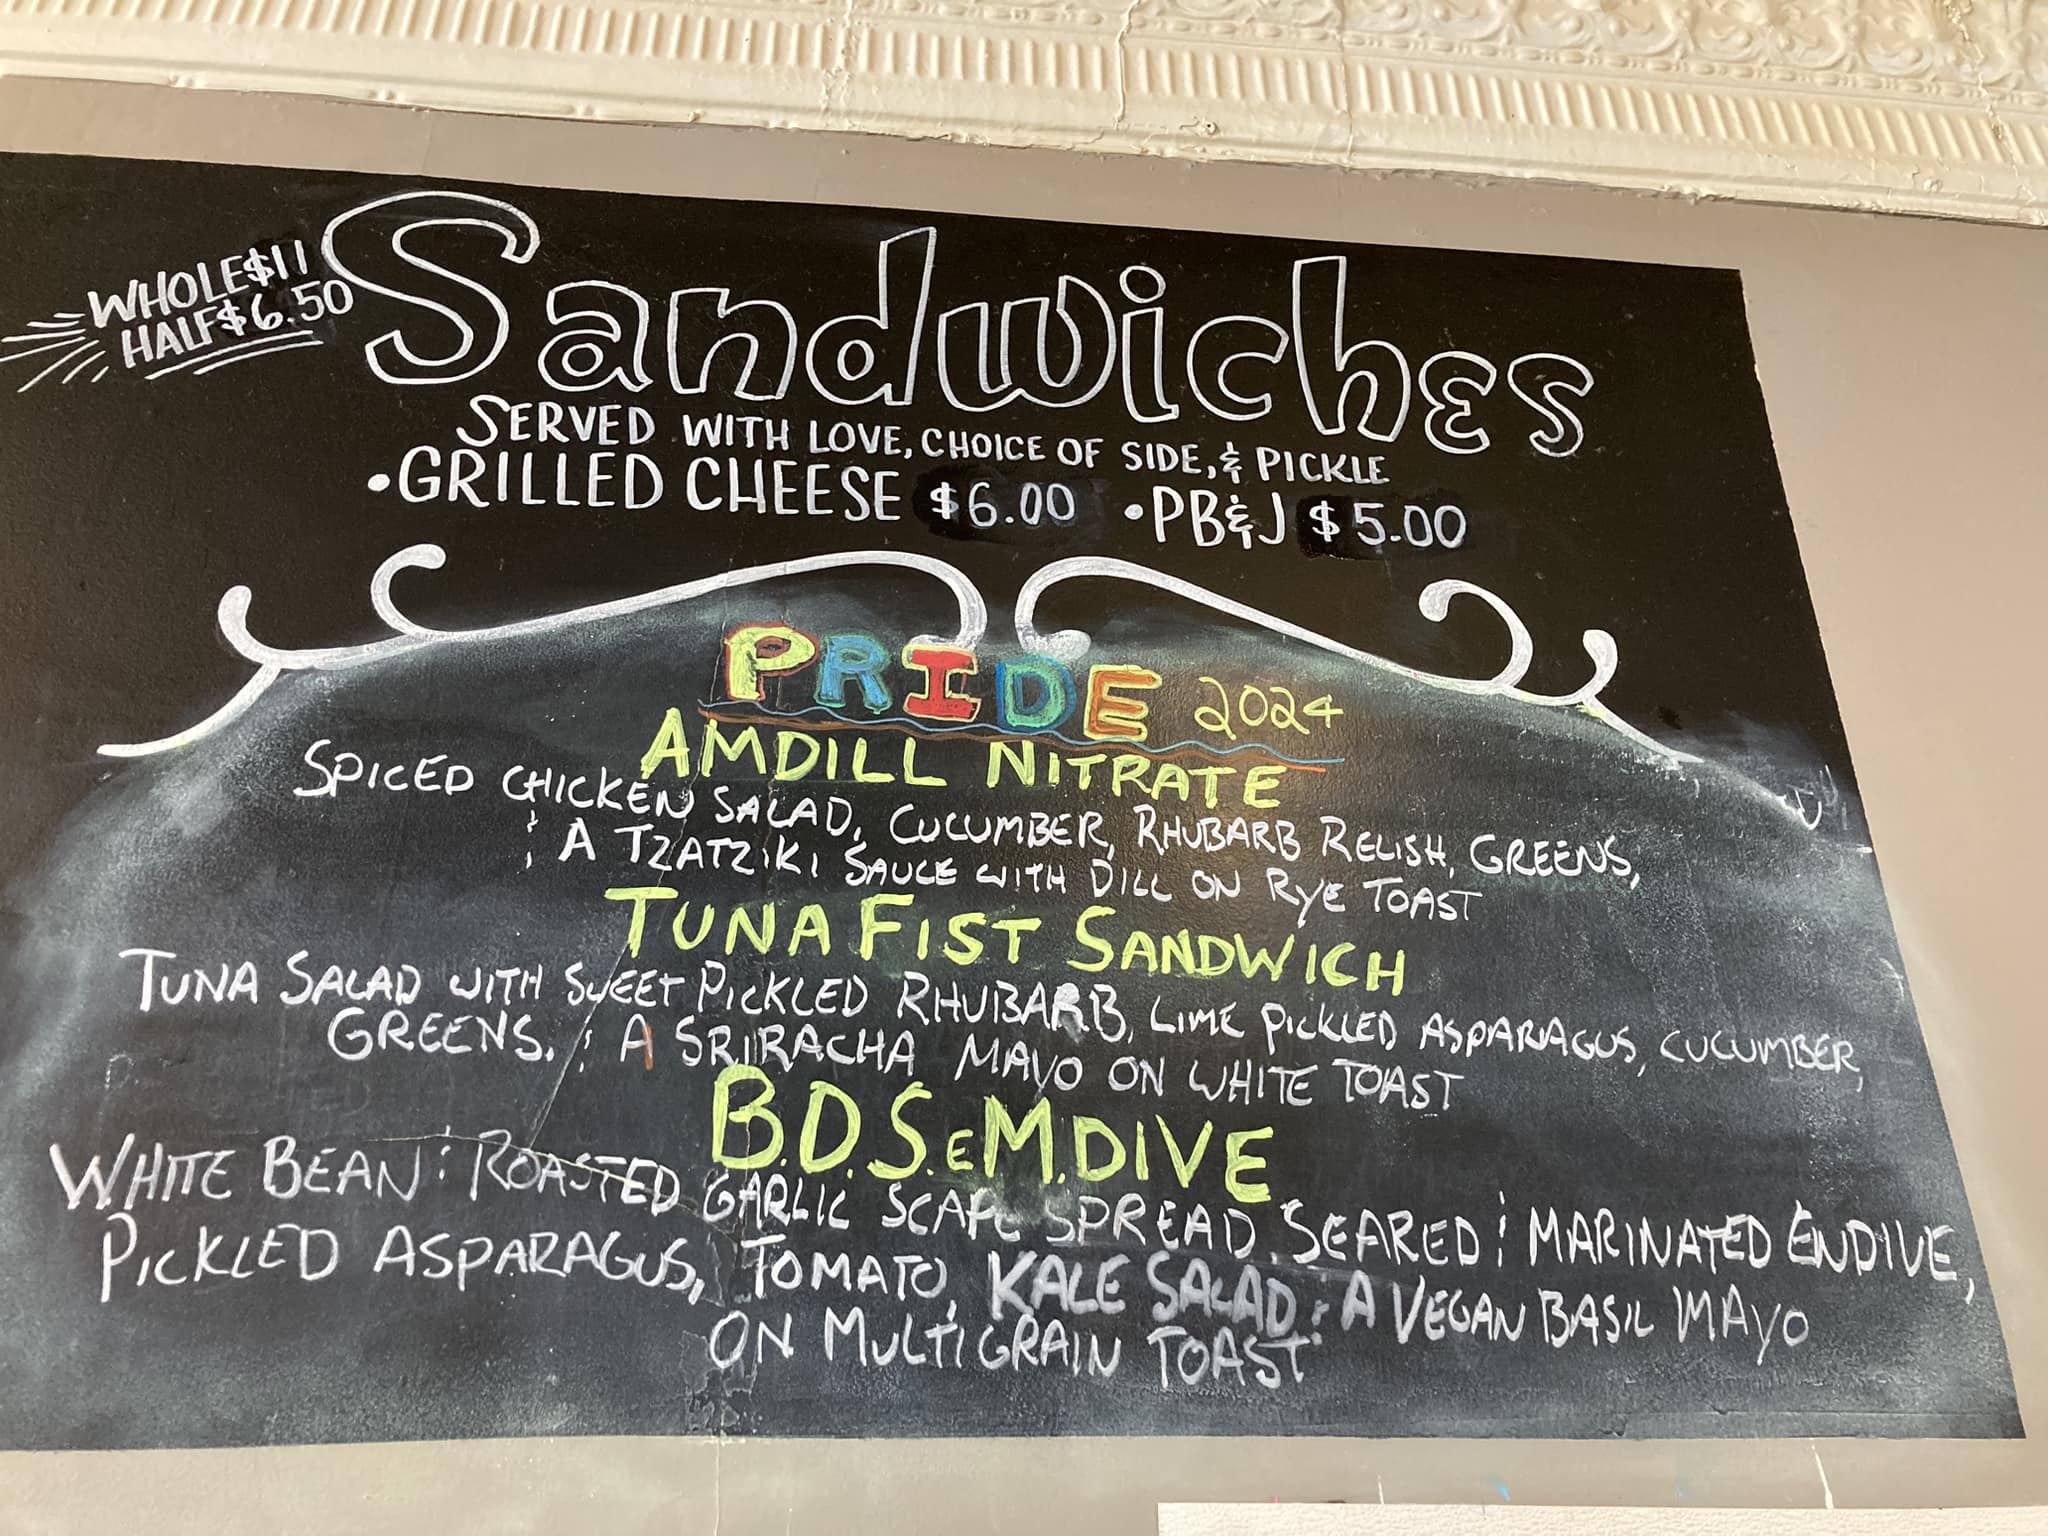 WHOLE $11
HALF $6.50
Sandwiches
SERVED WITH LOVE, CHOICE OF SIDE, & PICKLE
•GRILLED CHEESE $6.00 •PB&J $5.00
PRIDE 2024
AMDILL NITRATE
SPICED CHICKEN SALAD, CUCUMBER, RHUBARB RELISH, GREENS,
& A TZATZIKI SAUCE WITH DILL ON RYE TOAST
TUNA FIST SANDWICH
TUNA SALAD WITH SWEET PICKLED RHUBARB, LIME PICKLED ASPARAGUS, CUCUMBER,
GREENS, & A SRIRACHA MAYO ON WHITE TOAST
B.D.S.eM.DIVE
WHITE BEAN & ROASTED GARLIC SCAPE SPREAD, SEARED & MARINATED ENDIVE,
PICKLED ASPARAGUS, TOMATO, KALE SALAD & A VEGAN BASIL MAYO
ON MULTIGRAIN TOAST